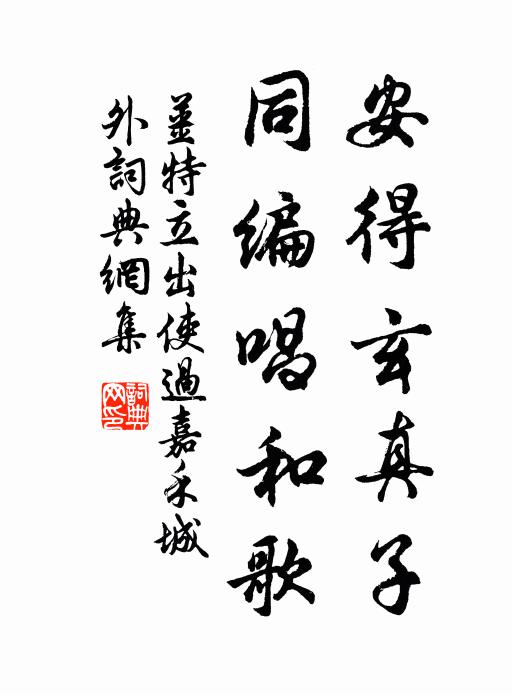 安得玄真子
同编唱和歌
姜特立出使過嘉禾城
外詞典網集
詞典
网印